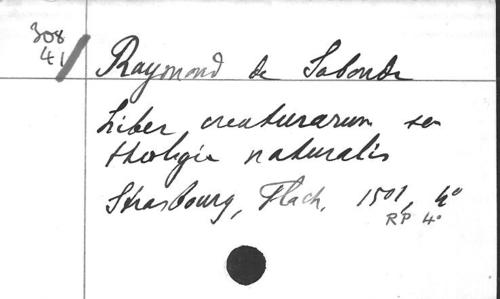 308
41/
Raymond de Sabonde
Liber creaturarum seu
theologia naturalis
Strasbourg, Flach, 1501, 4°
RP 4°